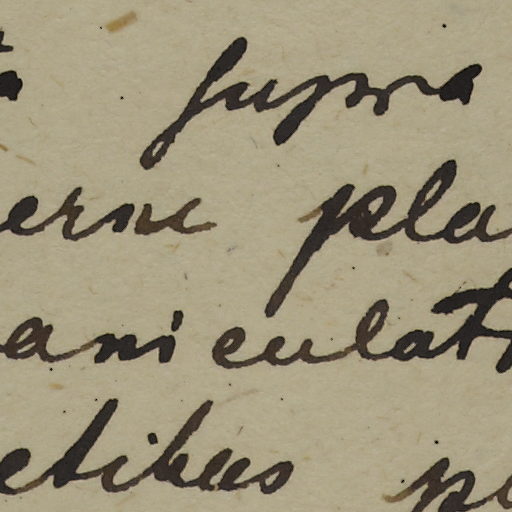 supra
erne pla
aniculati
etibus p